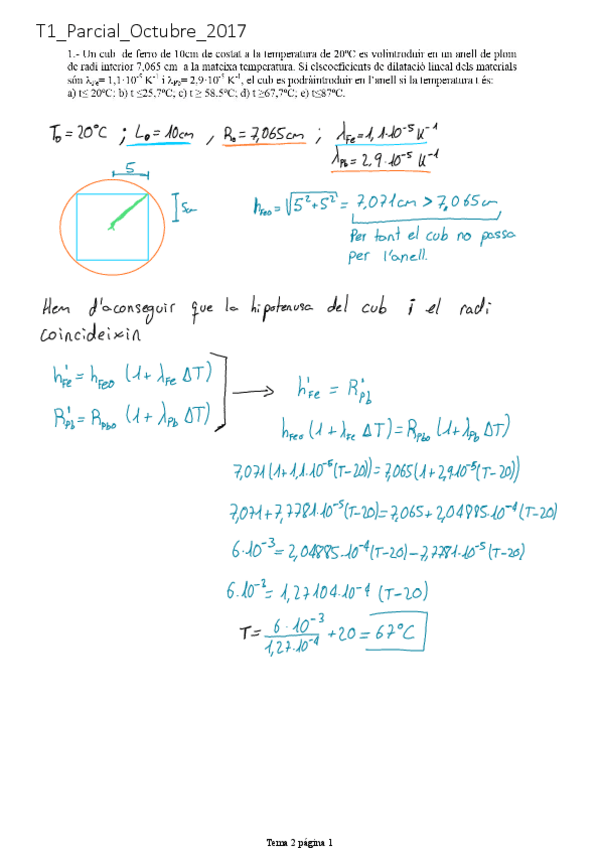 T1_Parcial_Octubre_2017
1.- Un cub de ferro de 10cm de costat a la temperatura de 20ºC es volintroduir en un anell de plom
de radi interior 7,065 cm a la mateixa temperatura. Si elscoeficients de dilatació lineal dels materials
són λFe= 1,1·10⁻⁵ K⁻¹ i λPb= 2,9·10⁻⁵ K⁻¹, el cub es podràintroduir en l'anell si la temperatura t és:
a) t≤ 20ºC; b) t ≤25,7ºC; c) t ≥ 58.5ºC; d) t ≥67,7ºC; e) t≤87ºC.
T₀ = 20°C ; L₀ = 10cm , R₀ = 7,065cm ; λFe = 1,1·10⁻⁵ K⁻¹
λPb = 2,9·10⁻⁵ K⁻¹
5
5cm
hFe0 = √5²+5² = 7,071cm > 7,065cm
Per tant el cub no passa
per l'anell.
Hem d'aconseguir que la hipotenusa del cub i el radi
coincideixin
h'Fe = hFe0 (1 + λFe ΔT)
R'Pb = RPb0 (1 + λPb ΔT)
h'Fe = R'Pb
hFe0 (1 + λFe ΔT) = RPb0 (1 + λPb ΔT)
7,071 (1 + 1,1·10⁻⁵(T-20)) = 7,065 (1 + 2,9·10⁻⁵(T-20))
7,071 + 7,7781·10⁻⁵(T-20) = 7,065 + 2,04885·10⁻⁴(T-20)
6·10⁻³ = 2,04885·10⁻⁴(T-20) - 7,7781·10⁻⁵(T-20)
6·10⁻³ = 1,27104·10⁻⁴ (T-20)
T = 6·10⁻³ / 1,27·10⁻⁴ + 20 = 67°C
Tema 2 página 1